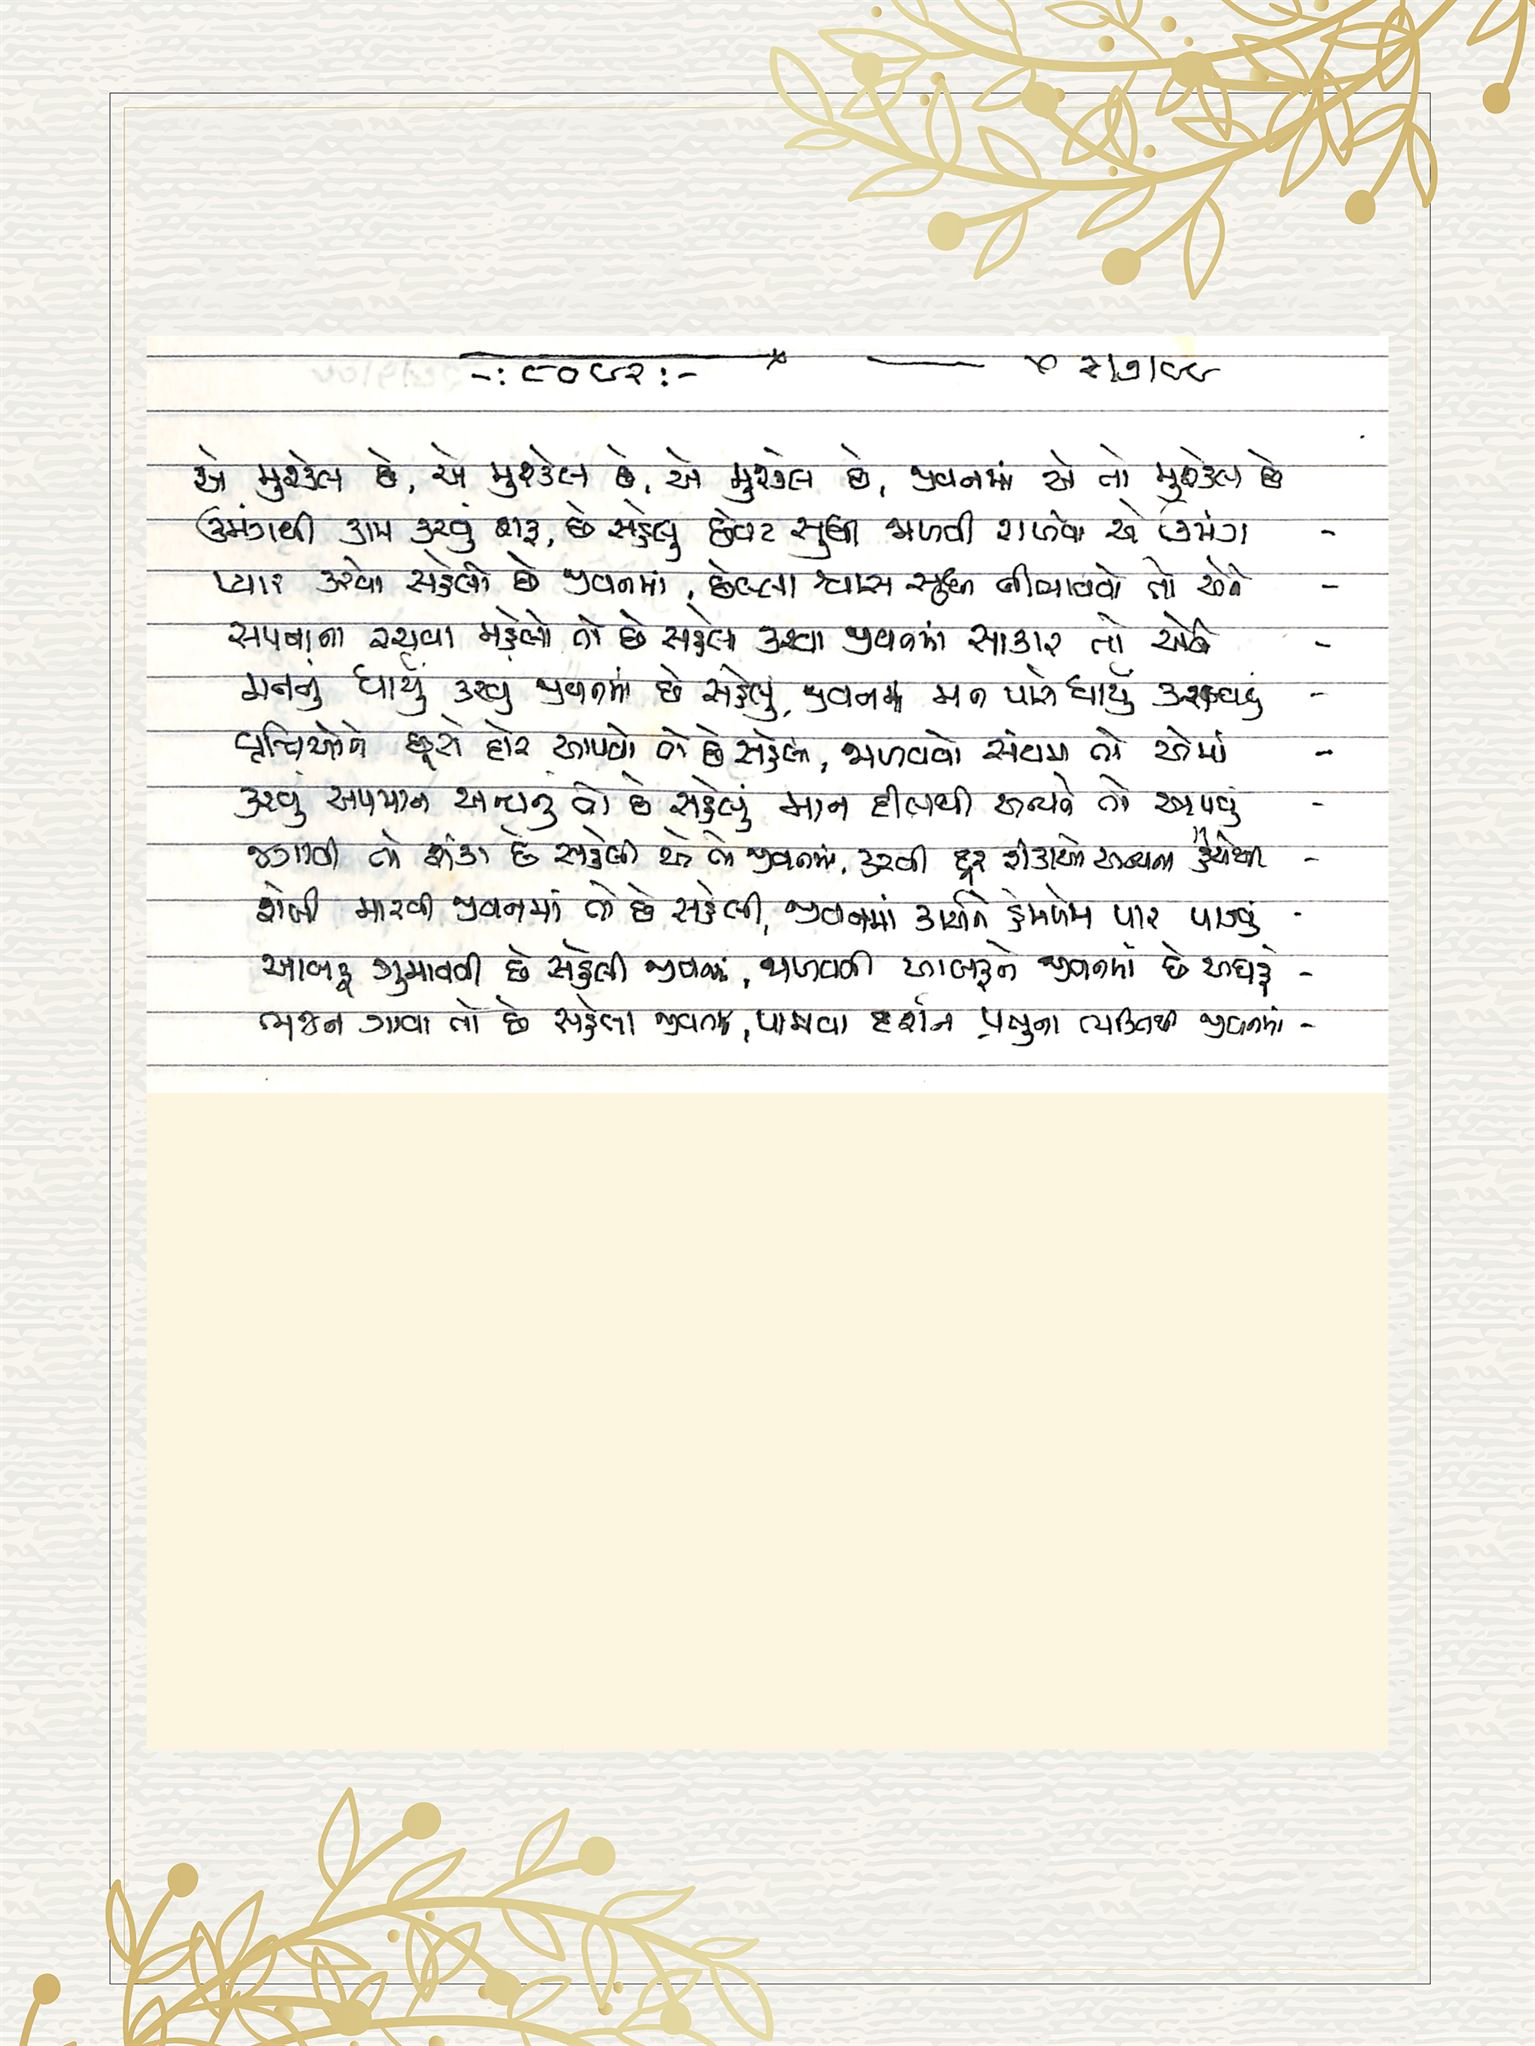 -: ૮૦૯૨ :- ૨/૭/૯૯
એ મુશ્કેલ છે, એ મુશ્કેલ છે, એ મુશ્કેલ છે, જીવનમાં એ તો મુશ્કેલ છે
ઉમંગથી કામ કરવું શરૂ, છે સહેલું છેવટ સુધી જાળવી રાખવો એ ઉમંગ -
પ્યાર કરવો સહેલો છે જીવનમાં, છેલ્લા શ્વાસ સુધી નીભાવવો તો એને -
સપનાંના રચવા મહેલો તો છે સહેલા કરવા જીવનમાં સાકાર તો એને -
મનનું ધાર્યું કરવું જીવનમાં છે સહેલું, જીવનમાં મન પાસે ધાર્યું કરાવવું -
વૃત્તિઓને છૂટો દોર આપવો તો છે સહેલો, જાળવવો સંયમ તો એમાં -
કરવું અપમાન અન્યનું તો છે સહેલું માન દીલથી અન્યને તો આપવું -
જગાવવી તો શંકા છે સહેલી જીવનમાં, કરવી દૂર શંકાઓ અન્યના હૈયેથી -
શેખી મારવી જીવનમાં તો છે સહેલી, જીવનમાં કાર્યને હેમખેમ પાર પાડવું -
આબરૂ ગુમાવવી છે સહેલી જીવનમાં, જાળવવી આબરૂને જીવનમાં છે અઘરું -
ભજન ગાવા તો છે સહેલા જીવનમાં, પામવા દર્શન પ્રભુના ભક્તિથી જીવનમાં -